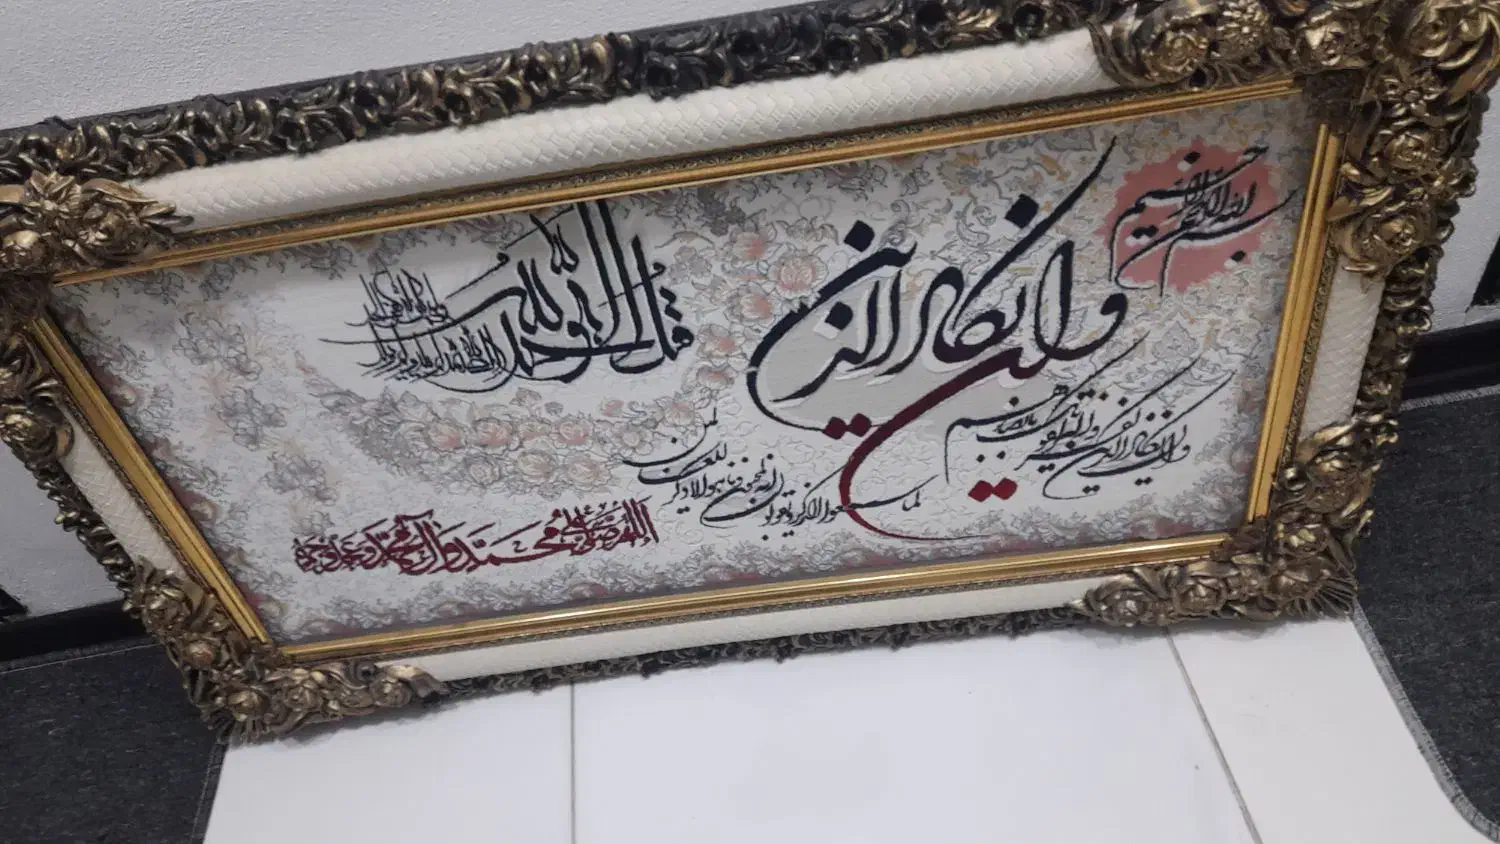 بسم الله الرحمن الرحیم
وان یکاد الذین
وان یکاد الذین کفروا لیزلقونک بابصارهم
لما سمعوا الذکر و یقولون انه لمجنون و ما هو الا ذکر للعالمین
قل هو الله احد الله الصمد لم یلد و لم یولد و لم یکن له کفوا احد
اللهم صل علی محمد و آل محمد و عجل فرجهم